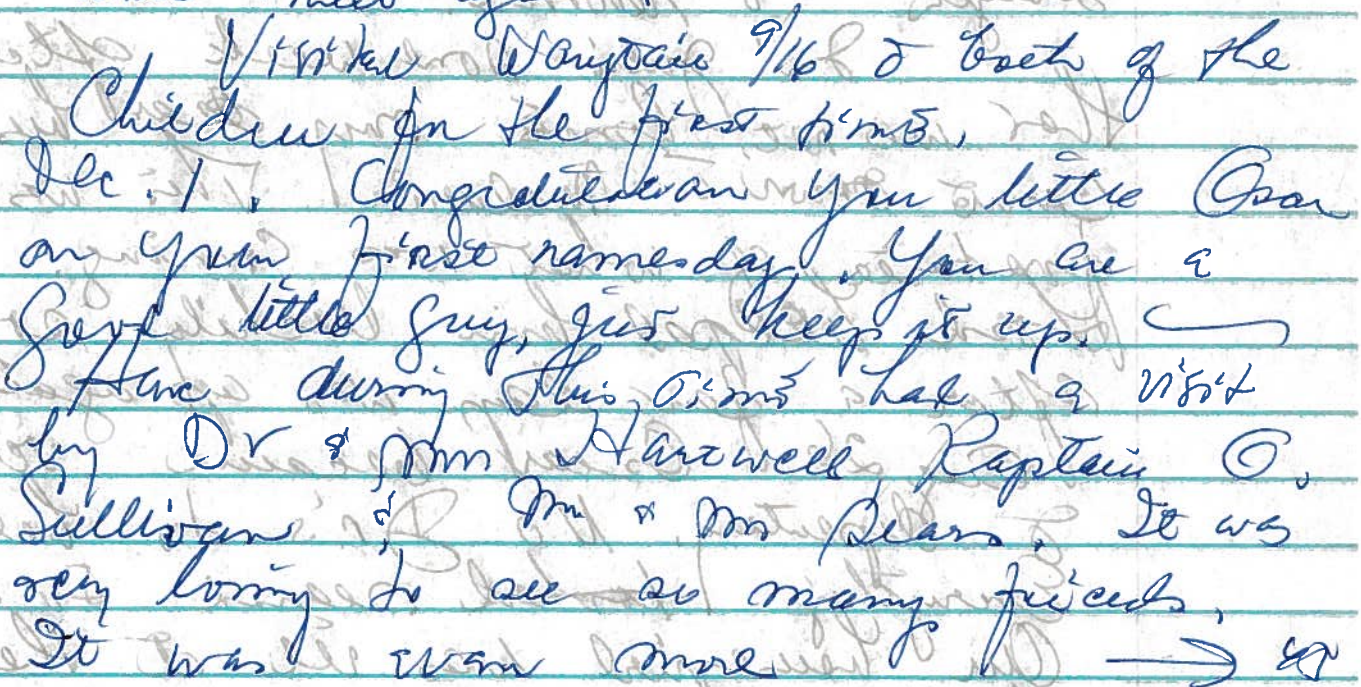 Visited 9/16 & both of the
Children for the first time,
Dec. 1. Congratulation you little Oscar
on your first namesday. You are a
good little guy, just keep it up.
Have during this time had a visit
by Dr & Mrs Hartwell, Kaptain O.
Sullivan & Mr & Mrs Sears. It was
very loving to see so many friends.
It was even more →